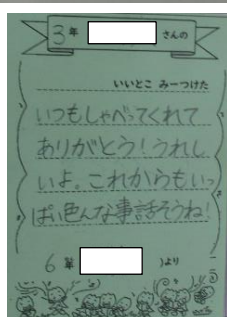 3年 さんの
いいとこ みーつけた
いつもしゃべってくれて
ありがとう！うれし
いよ。これからもいっ
ぱい色んな事話そうね！
6年 より